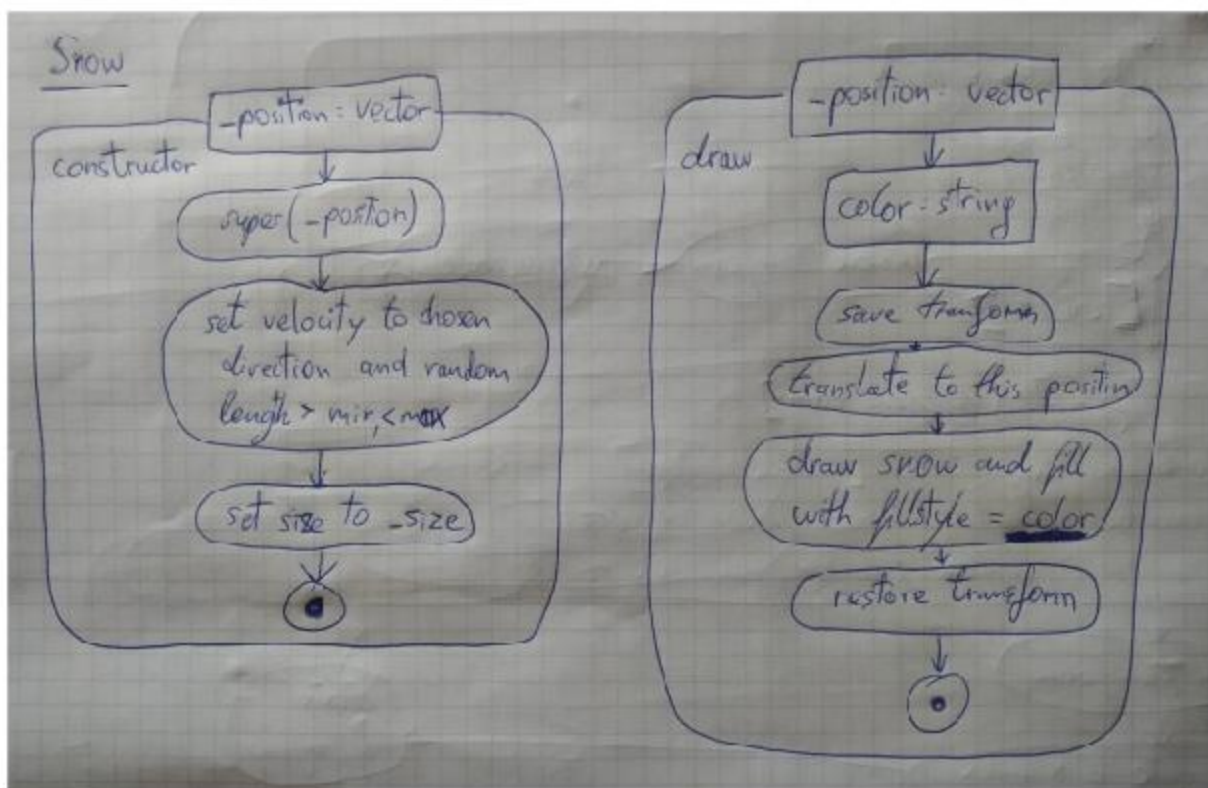 Snow
_position : vector
constructor
super(_positon)
set velocity to chosen
direction and random
length > min, < max
set size to _size
_position : vector
draw
color : string
save transform
translate to this positin
draw snow and fill
with fillstyle = color
restore transform